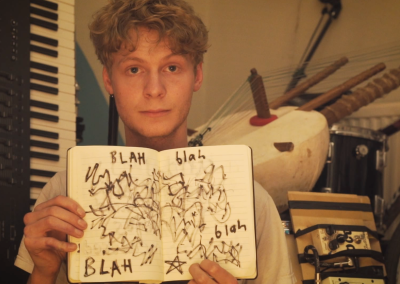 BLAH blah
blah
BLAH